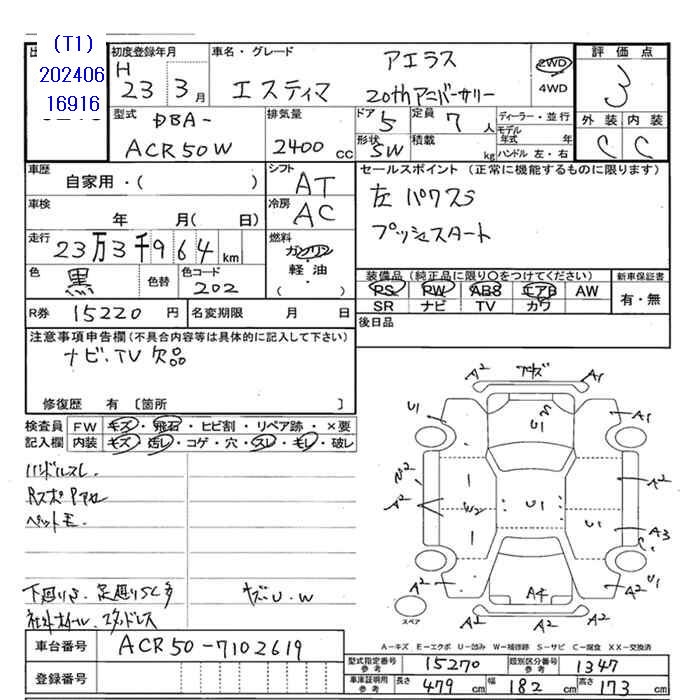 (T1)
202406
16916
初度登録年月
H
23 3月
車名・グレード
アエラス
エスティマ 20thアニバーサリー
2WD
4WD
評価点
3
外装 内装
C C
型式
DBA-
ACR50W
排気量
2400cc
ドア 5
形状 SW
定員 7人
積載 kg
ディーラー・並行
モデル年式 年
ハンドル 左・右
車歴
自家用・( )
車検
年 月(日)
走行
23万3千964km
色
黒
色替
色コード
202
シフト
AT
冷房
AC
燃料
ガソリン
軽・油
( )
セールスポイント(正常に機能するものに限ります)
左パワスラ
プッシュスタート
装備品(純正品に限り○をつけてください)
PS PW ABS エアB AW
SR ナビ TV カワ
新車保証書
有・無
後日品
R券 15220円
名変期限 月 日
注意事項申告欄(不具合内容等は具体的に記入して下さい)
ナビ、TV欠品
修復歴 有 〔箇所 〕
検査員
記入欄
FW キズ・飛石・ヒビ割・リペア跡・×要
内装 キズ・汚レ・コゲ・穴・スレ・モレ・破レ
ハンドルスレ
ペットモ
下廻りさ、足廻りSC多
キズU.W
社外ホイール、スタッドレス
A2 A1
U1 A1
U1
W2
A2 A2
W2 U1 U1
A3
C
U1
A2 A4 A2
A2 A2
スペア
A-キズ E-エクボ U-凹み W-補修跡 S-サビ C-腐食 XX-交換済
車台番号 ACR50-7102619
登録番号
型式指定番号参考 15270
類別区分番号参考 1347
車庫証明用参考 長さ 479cm 幅 182cm 高さ 173cm